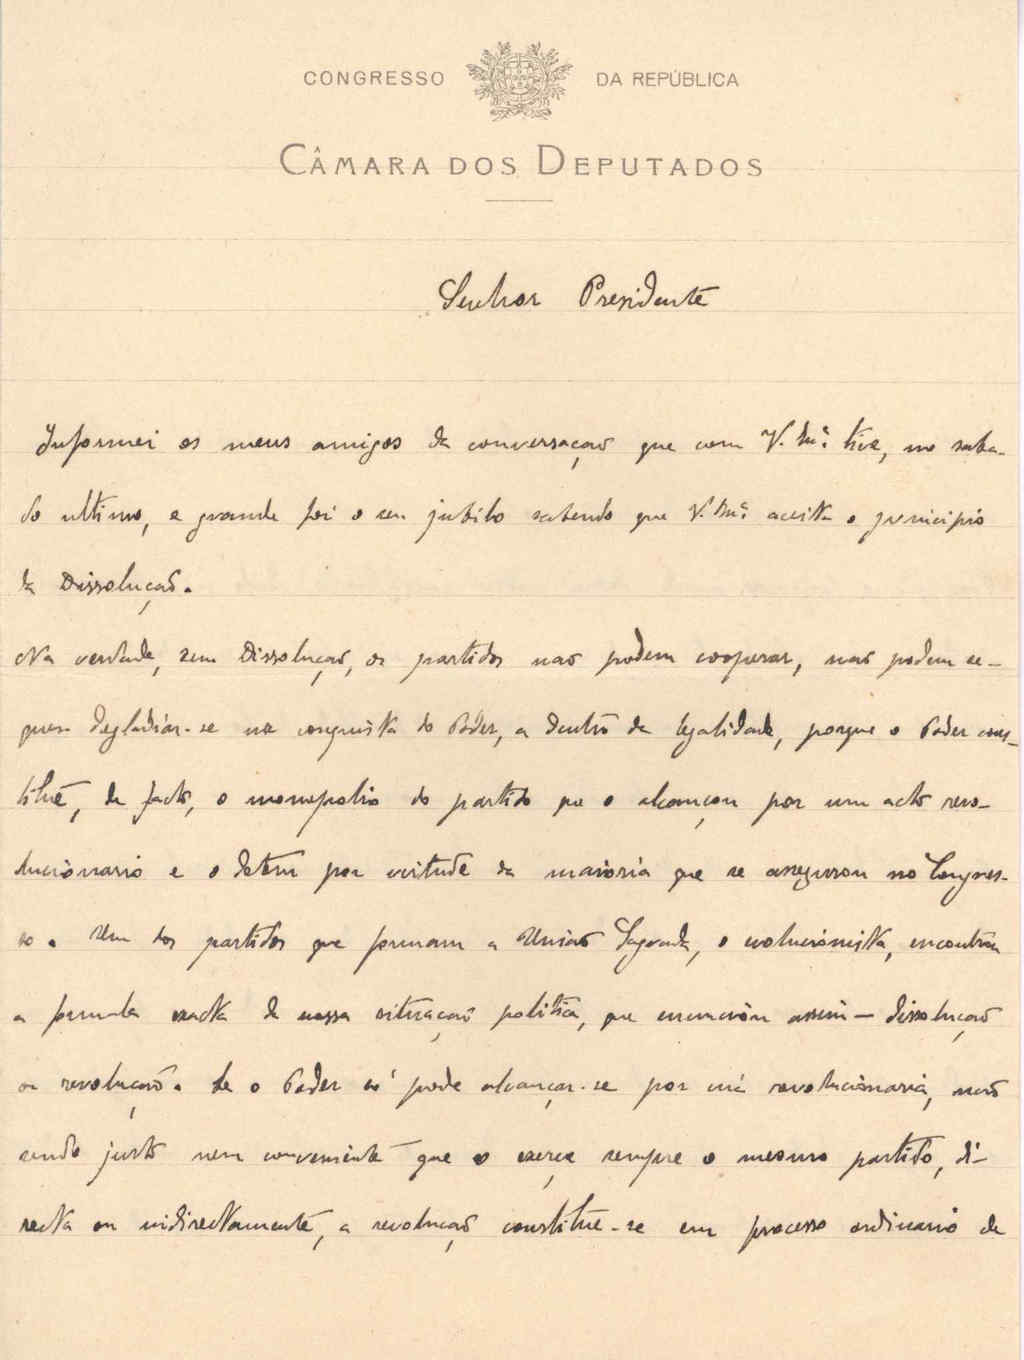 CONGRESSO DA REPÚBLICA
CÂMARA DOS DEPUTADOS
Senhor Presidente
Informei os meus amigos da conversação que com V. Exª tive, no saba-
do ultimo, e grande foi o seu jubilo sabendo que V. Exª aceita o principio
da Dissolução.
Na verdade, sem Dissolução, os partidos não podem cooperar, não podem se-
quer degladiar-se na conquista do Poder, a dentro da legalidade, porque o Poder cons-
titue, de facto, o monopolio do partido que o alcançou por um acto revo-
lucionario e o detem por virtude da maioria que se assegurou no Congres-
so. Um dos partidos que formam a União Sagrada, o evolucionista, encontrou
a formula exacta da nossa situação politica, que enunciou assim — dissolução
ou revolução. Se o Poder só pode alcançar-se por via revolucionaria, não
sendo justo nem conveniente que o exerça sempre o mesmo partido, di-
recta ou indirectamente, a revolução constitue-se em processo ordinario de